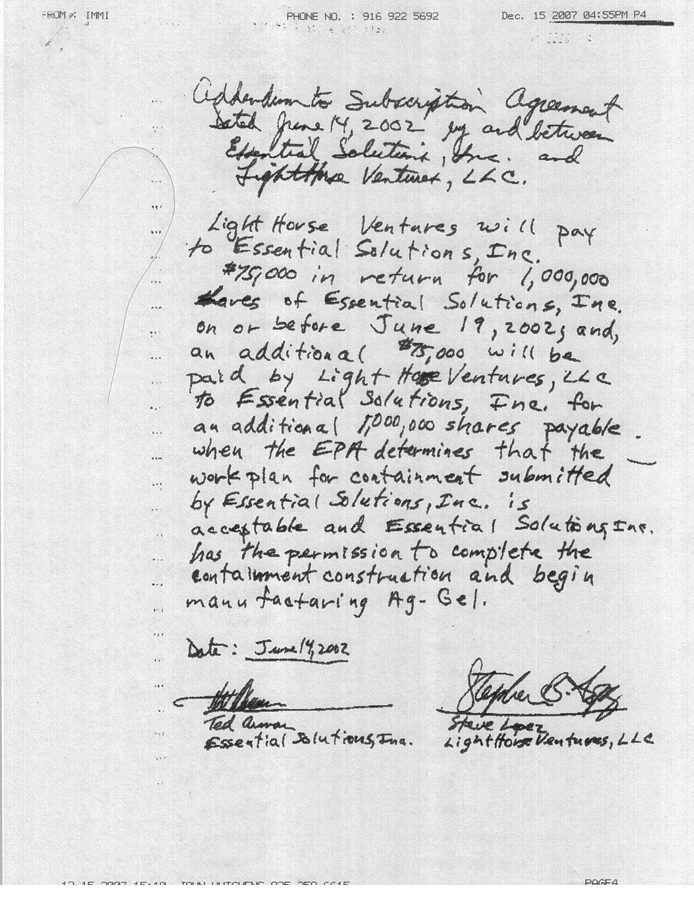 FROM : IMMI PHONE NO. : 916 922 5692 Dec. 15 2007 04:55PM P4
Addendum to Subscription Agreement
Dated June 14, 2002 by and between
Essential Solutions, Inc. and
LightHorse Ventures, LLC.
Light Horse Ventures will pay
to Essential Solutions, Inc.
$75,000 in return for 1,000,000
shares of Essential Solutions, Inc.
on or before June 19, 2002; and,
an additional $75,000 will be
paid by Light Horse Ventures, LLC
to Essential Solutions, Inc. for
an additional 1,000,000 shares payable
when the EPA determines that the
work plan for containment submitted
by Essential Solutions, Inc. is
acceptable and Essential Solutions, Inc.
has the permission to complete the
containment construction and begin
manufacturing Ag-Gel.
Date: June 14, 2002
Stephen B. Lopez
Ted Arman Steve Lopez
Essential Solutions, Inc. LightHorse Ventures, LLC
PAGE4